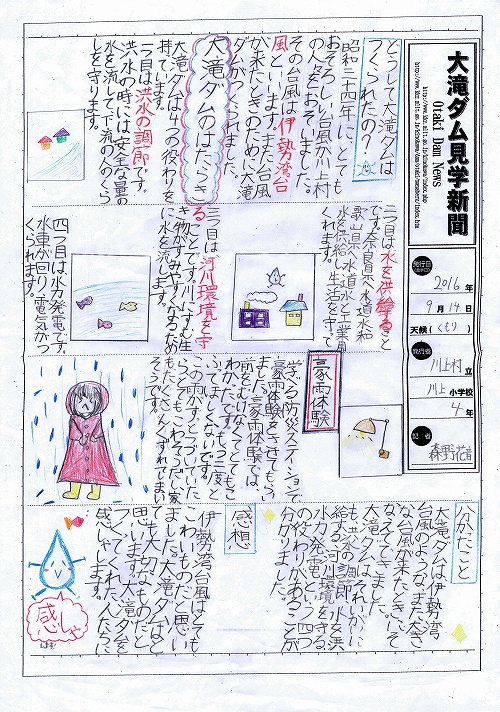 大滝ダム見学新聞
Otaki Dam News
発行日
2016年
9月14日
天候(くもり)
発行者
川上村立
川上小学校
4年
記者
どうして大滝ダムは
つくられたの？
昭和三十四年に、とても
おそろしい台風が川上村
の人々をおそいました。
その台風は伊勢湾台
風といいます。また台風
が来たときのために大滝
ダムがつくられました。
大滝ダムのはたらき
大滝ダムは4つの役わりを
持ています。
一つ目は洪水の調節です。
洪水の時には安全な量の
水を流して下流の人のくら
しを守ります。
二つ目は水を供給るこ
とです。奈良県へ水道水和
歌山県へ水道水と工業用
水を供給し、生活を守て
くれます。
三つ目は河川環境を守
ることです。川にすむ生
き物がすみやすくなるため
に水を流します。
四つ目は水力発電です。
水車が回り、電気がつ
くられます。
豪雨体験
学べる防災ステーションで
豪雨体験をさせてもらい
ました。豪雨体験では、
前をむけなくてとてもこ
わかたです。もう二度と
ふってほしくないです。
この雨がずっとつづいていた
らとてもこわそうだし家
もたくさんくずれてしまい
そうです。
分かたこと
大滝ダムは伊勢湾
台風のような、また大き
な台風が来たときにそ
なえてできました。
大滝ダムは、それいがいに
も洪水の調節、水を供
給する、河川環境を守る、
水力発電という四つ
の役わりがあることが
分かりました。
感想
伊勢湾台風はとても
こわいものだと思い
ました。大滝ダムはと
ても大切なものだと
思います。大滝ダムを
つくてくれた人たちに
感しゃします。
感しゃ